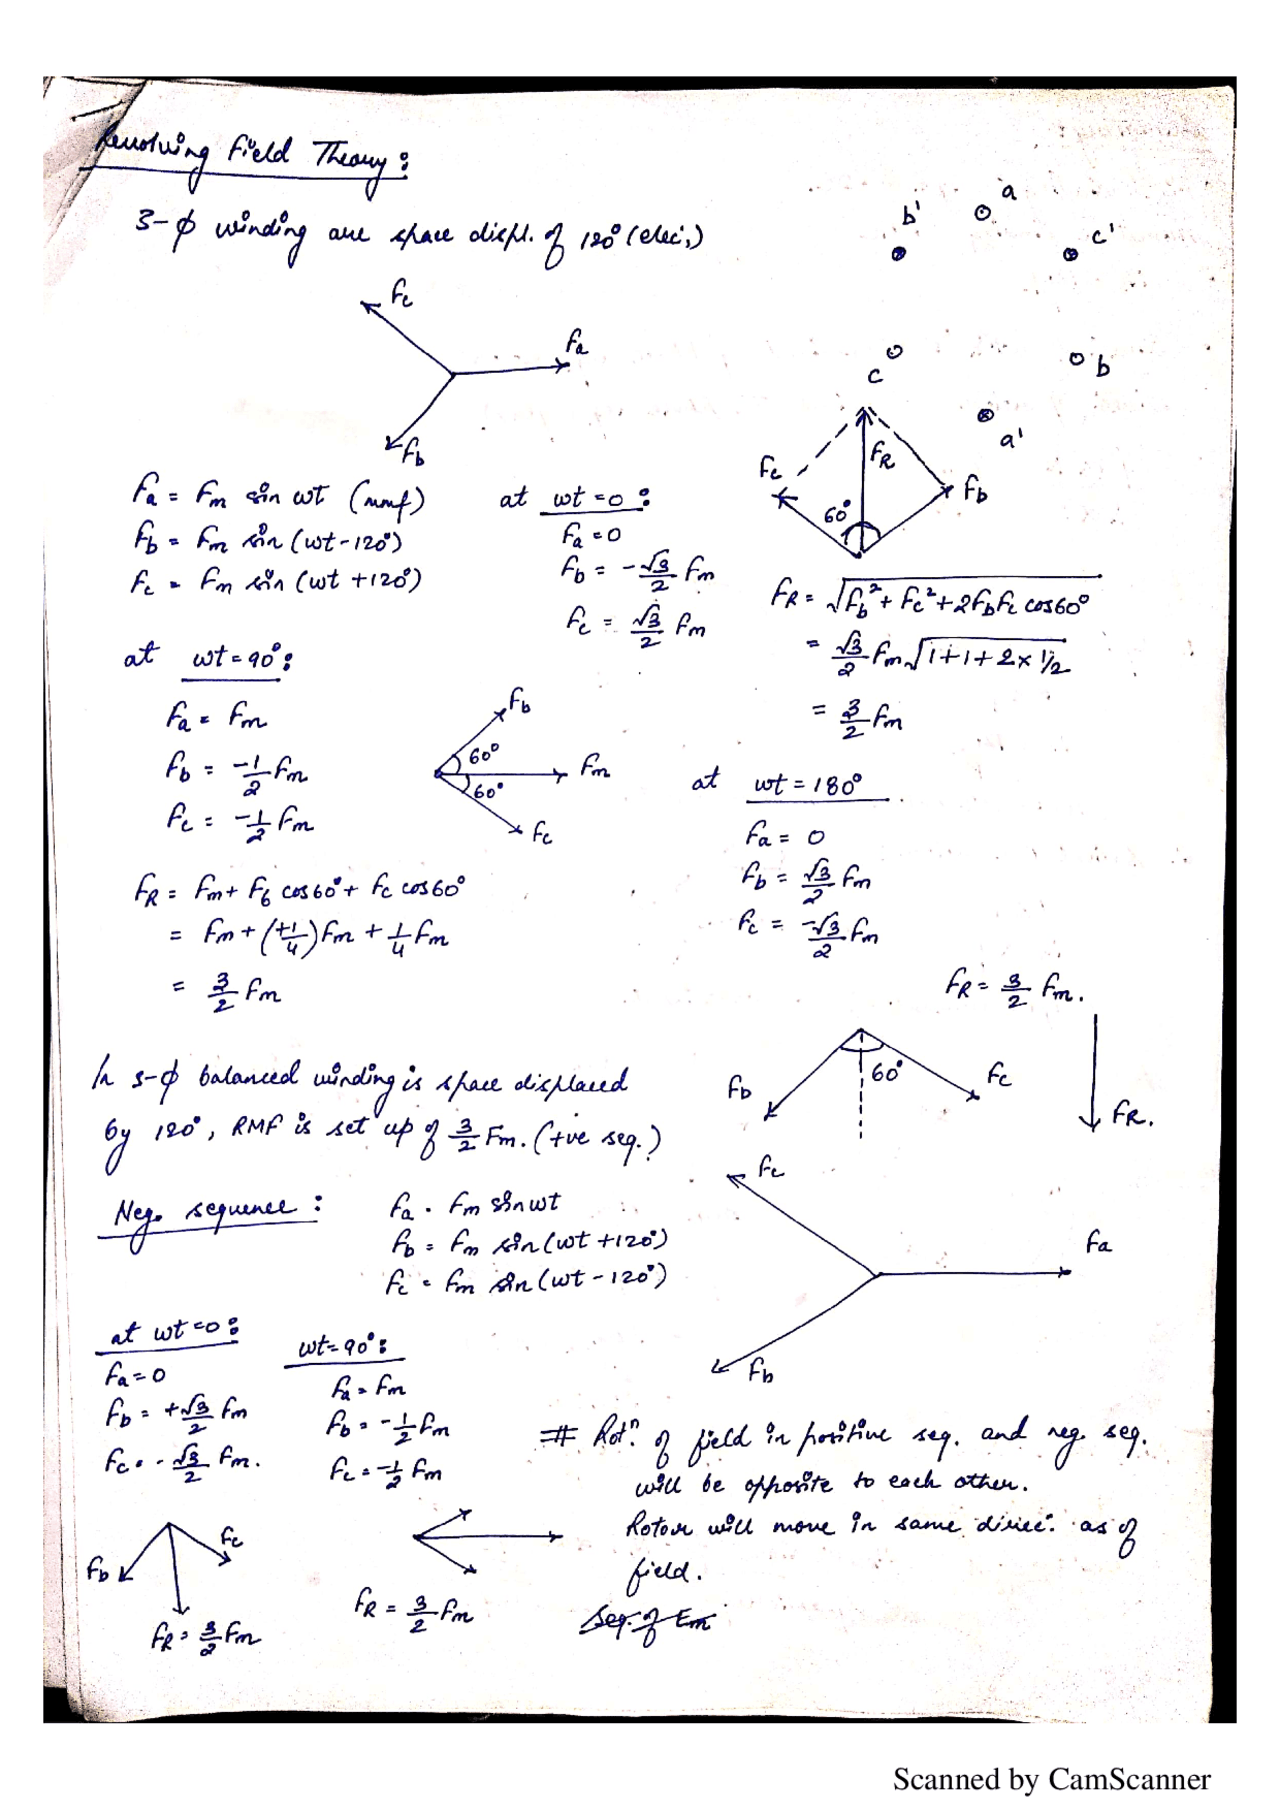 Revolving Field Theory:
3-φ winding are space displ. of 120° (elec.)
a
b'
c'
c
b
a'
Fc
Fa
Fb
Fa = Fm sin wt (mmf)
Fb = Fm sin (wt - 120°)
Fc = Fm sin (wt + 120°)
at wt = 0 :
Fa = 0
Fb = -√3/2 Fm
Fc = √3/2 Fm
Fc
FR
Fb
60°
FR = √(Fb² + Fc² + 2FbFc cos60°)
= √3/2 Fm √(1+1+2×1/2)
= 3/2 Fm
at wt = 90° :
Fa = Fm
Fb = -1/2 Fm
Fc = -1/2 Fm
Fb
60°
Fm
60°
Fc
FR = Fm + Fb cos60° + Fc cos60°
= Fm + (+1/4) Fm + 1/4 Fm
= 3/2 Fm
at wt = 180°
Fa = 0
Fb = √3/2 Fm
Fc = -√3/2 Fm
FR = 3/2 Fm.
Fb
60°
Fc
FR.
In 3-φ balanced winding is space displaced
by 120°, RMF is set up of 3/2 Fm. (+ve seq.)
Neg. sequence :
Fa = Fm sin wt
Fb = Fm sin (wt + 120°)
Fc = Fm sin (wt - 120°)
Fc
Fa
Fb
at wt = 0 :
Fa = 0
Fb = +√3/2 Fm
Fc = -√3/2 Fm.
wt = 90° :
Fa = Fm
Fb = -1/2 Fm
Fc = -1/2 Fm
Fb
Fc
FR = 3/2 Fm
FR = 3/2 Fm
# Rotⁿ. of field in positive seq. and neg. seq.
will be opposite to each other.
Rotor will move in same direc. as of
field.
Seq. of Em
Scanned by CamScanner